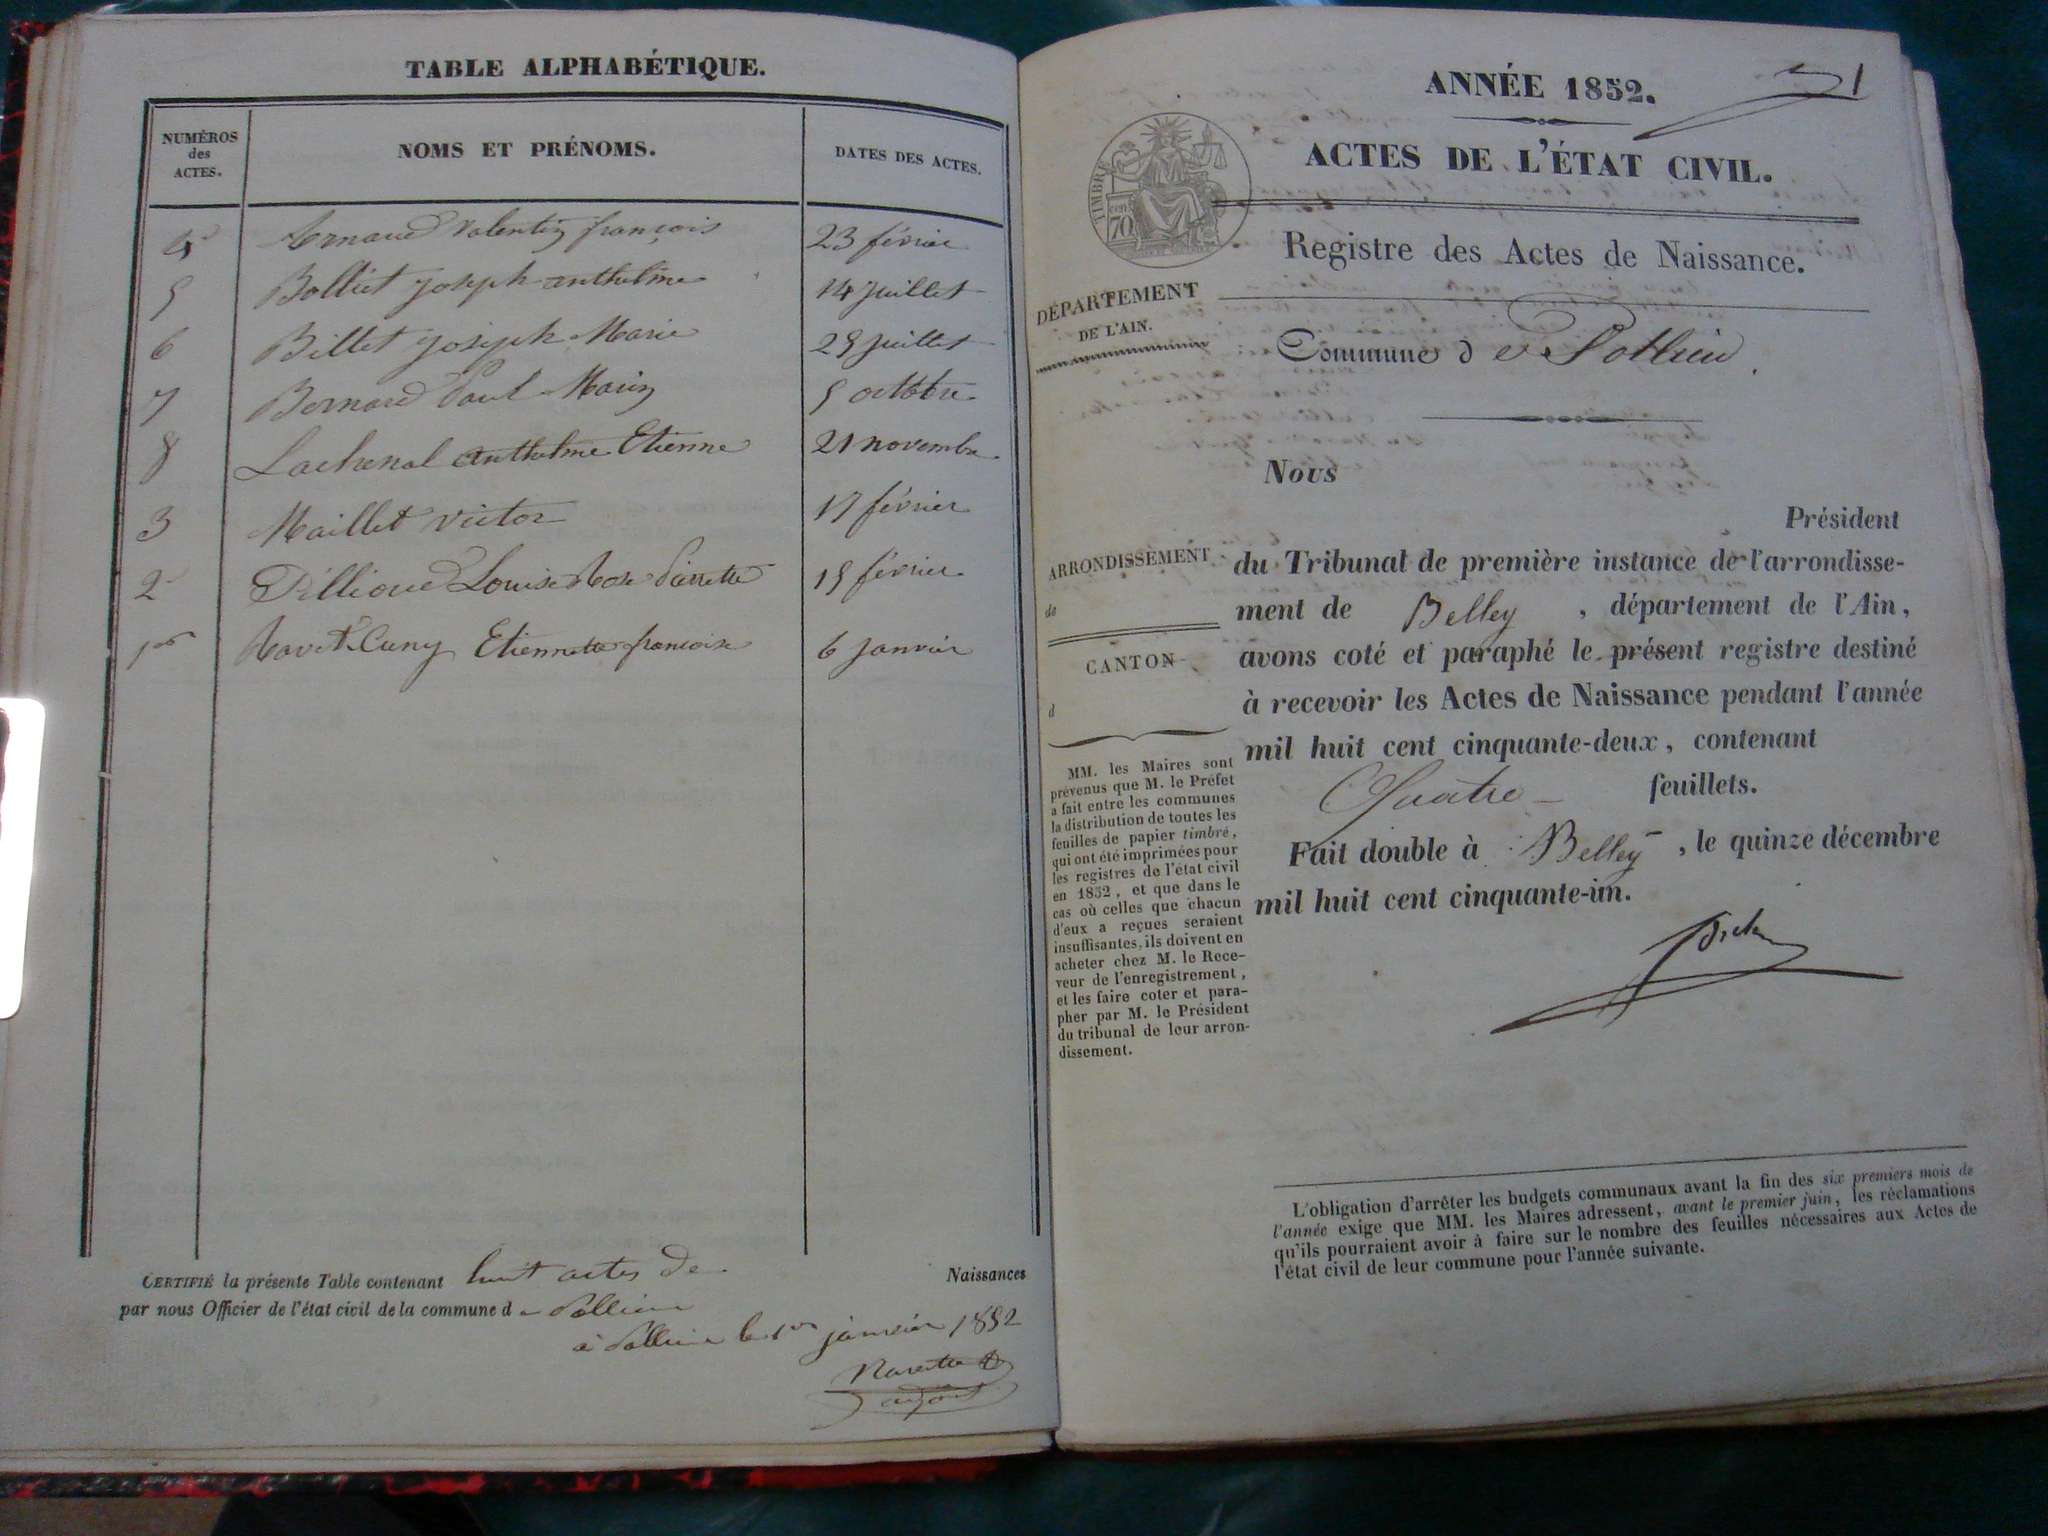 TABLE ALPHABÉTIQUE.
NUMÉROS des ACTES. NOMS ET PRÉNOMS. DATES DES ACTES.
4 Arnaud Valentin françois 23 février
5 Bolliet joseph anthelme 14 juillet
6 Billet joseph Marie 29 juillet
7 Bernard Paul Marin 5 octobre
8 Lachenal anthelme Etienne 21 novembre
3 Maillet victor 17 février
2 Louise Rose Pierrette 15 février
1er Etiennette françoise 6 janvier
CERTIFIÉ la présente Table contenant huit actes de Naissances
par nous Officier de l'état civil de la commune de Pollieu
à Pollieu le 1er janvier 1852
1
ANNÉE 1852.
ACTES DE L'ÉTAT CIVIL.
TIMBRE
cen. 70
Registre des Actes de Naissance.
DÉPARTEMENT
DE L'AIN.
Commune de Pollieu.
Nous
Président
ARRONDISSEMENT
de
CANTON
d
du Tribunal de première instance de l'arrondisse-
ment de Belley, département de l'Ain,
avons coté et paraphé le présent registre destiné
à recevoir les Actes de Naissance pendant l'année
mil huit cent cinquante-deux, contenant
Quatre feuillets.
Fait double à Belley, le quinze décembre
mil huit cent cinquante-un.
MM. les Maires sont
prévenus que M. le Préfet
a fait entre les communes
la distribution de toutes les
feuilles de papier timbré,
qui ont été imprimées pour
les registres de l'état civil
en 1852, et que dans le
cas où celles que chacun
d'eux a reçues seraient
insuffisantes, ils doivent en
acheter chez M. le Rece-
veur de l'enregistrement,
et les faire coter et para-
pher par M. le Président
du tribunal de leur arron-
dissement.
L'obligation d'arrêter les budgets communaux avant la fin des six premiers mois de
l'année exige que MM. les Maires adressent, avant le premier juin, les réclamations
qu'ils pourraient avoir à faire sur le nombre des feuilles nécessaires aux Actes de
l'état civil de leur commune pour l'année suivante.